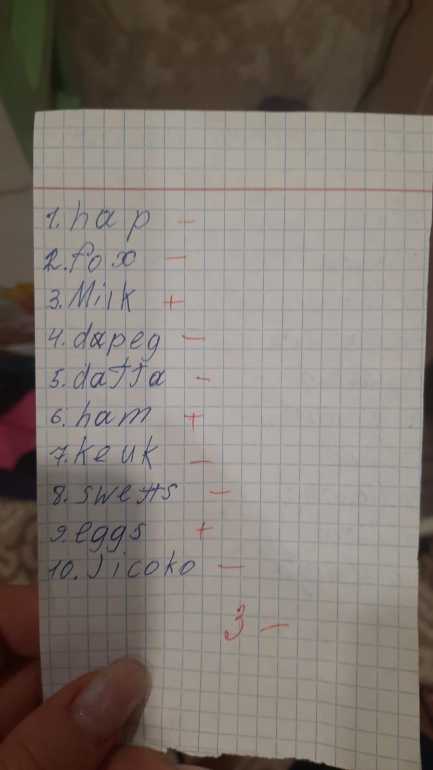 1. hap -
2. fox -
3. Milk +
4. dapeg -
5. datta -
6. ham +
7. keuk -
8. swetts -
9. eggs +
10. Jicoko -
3 -